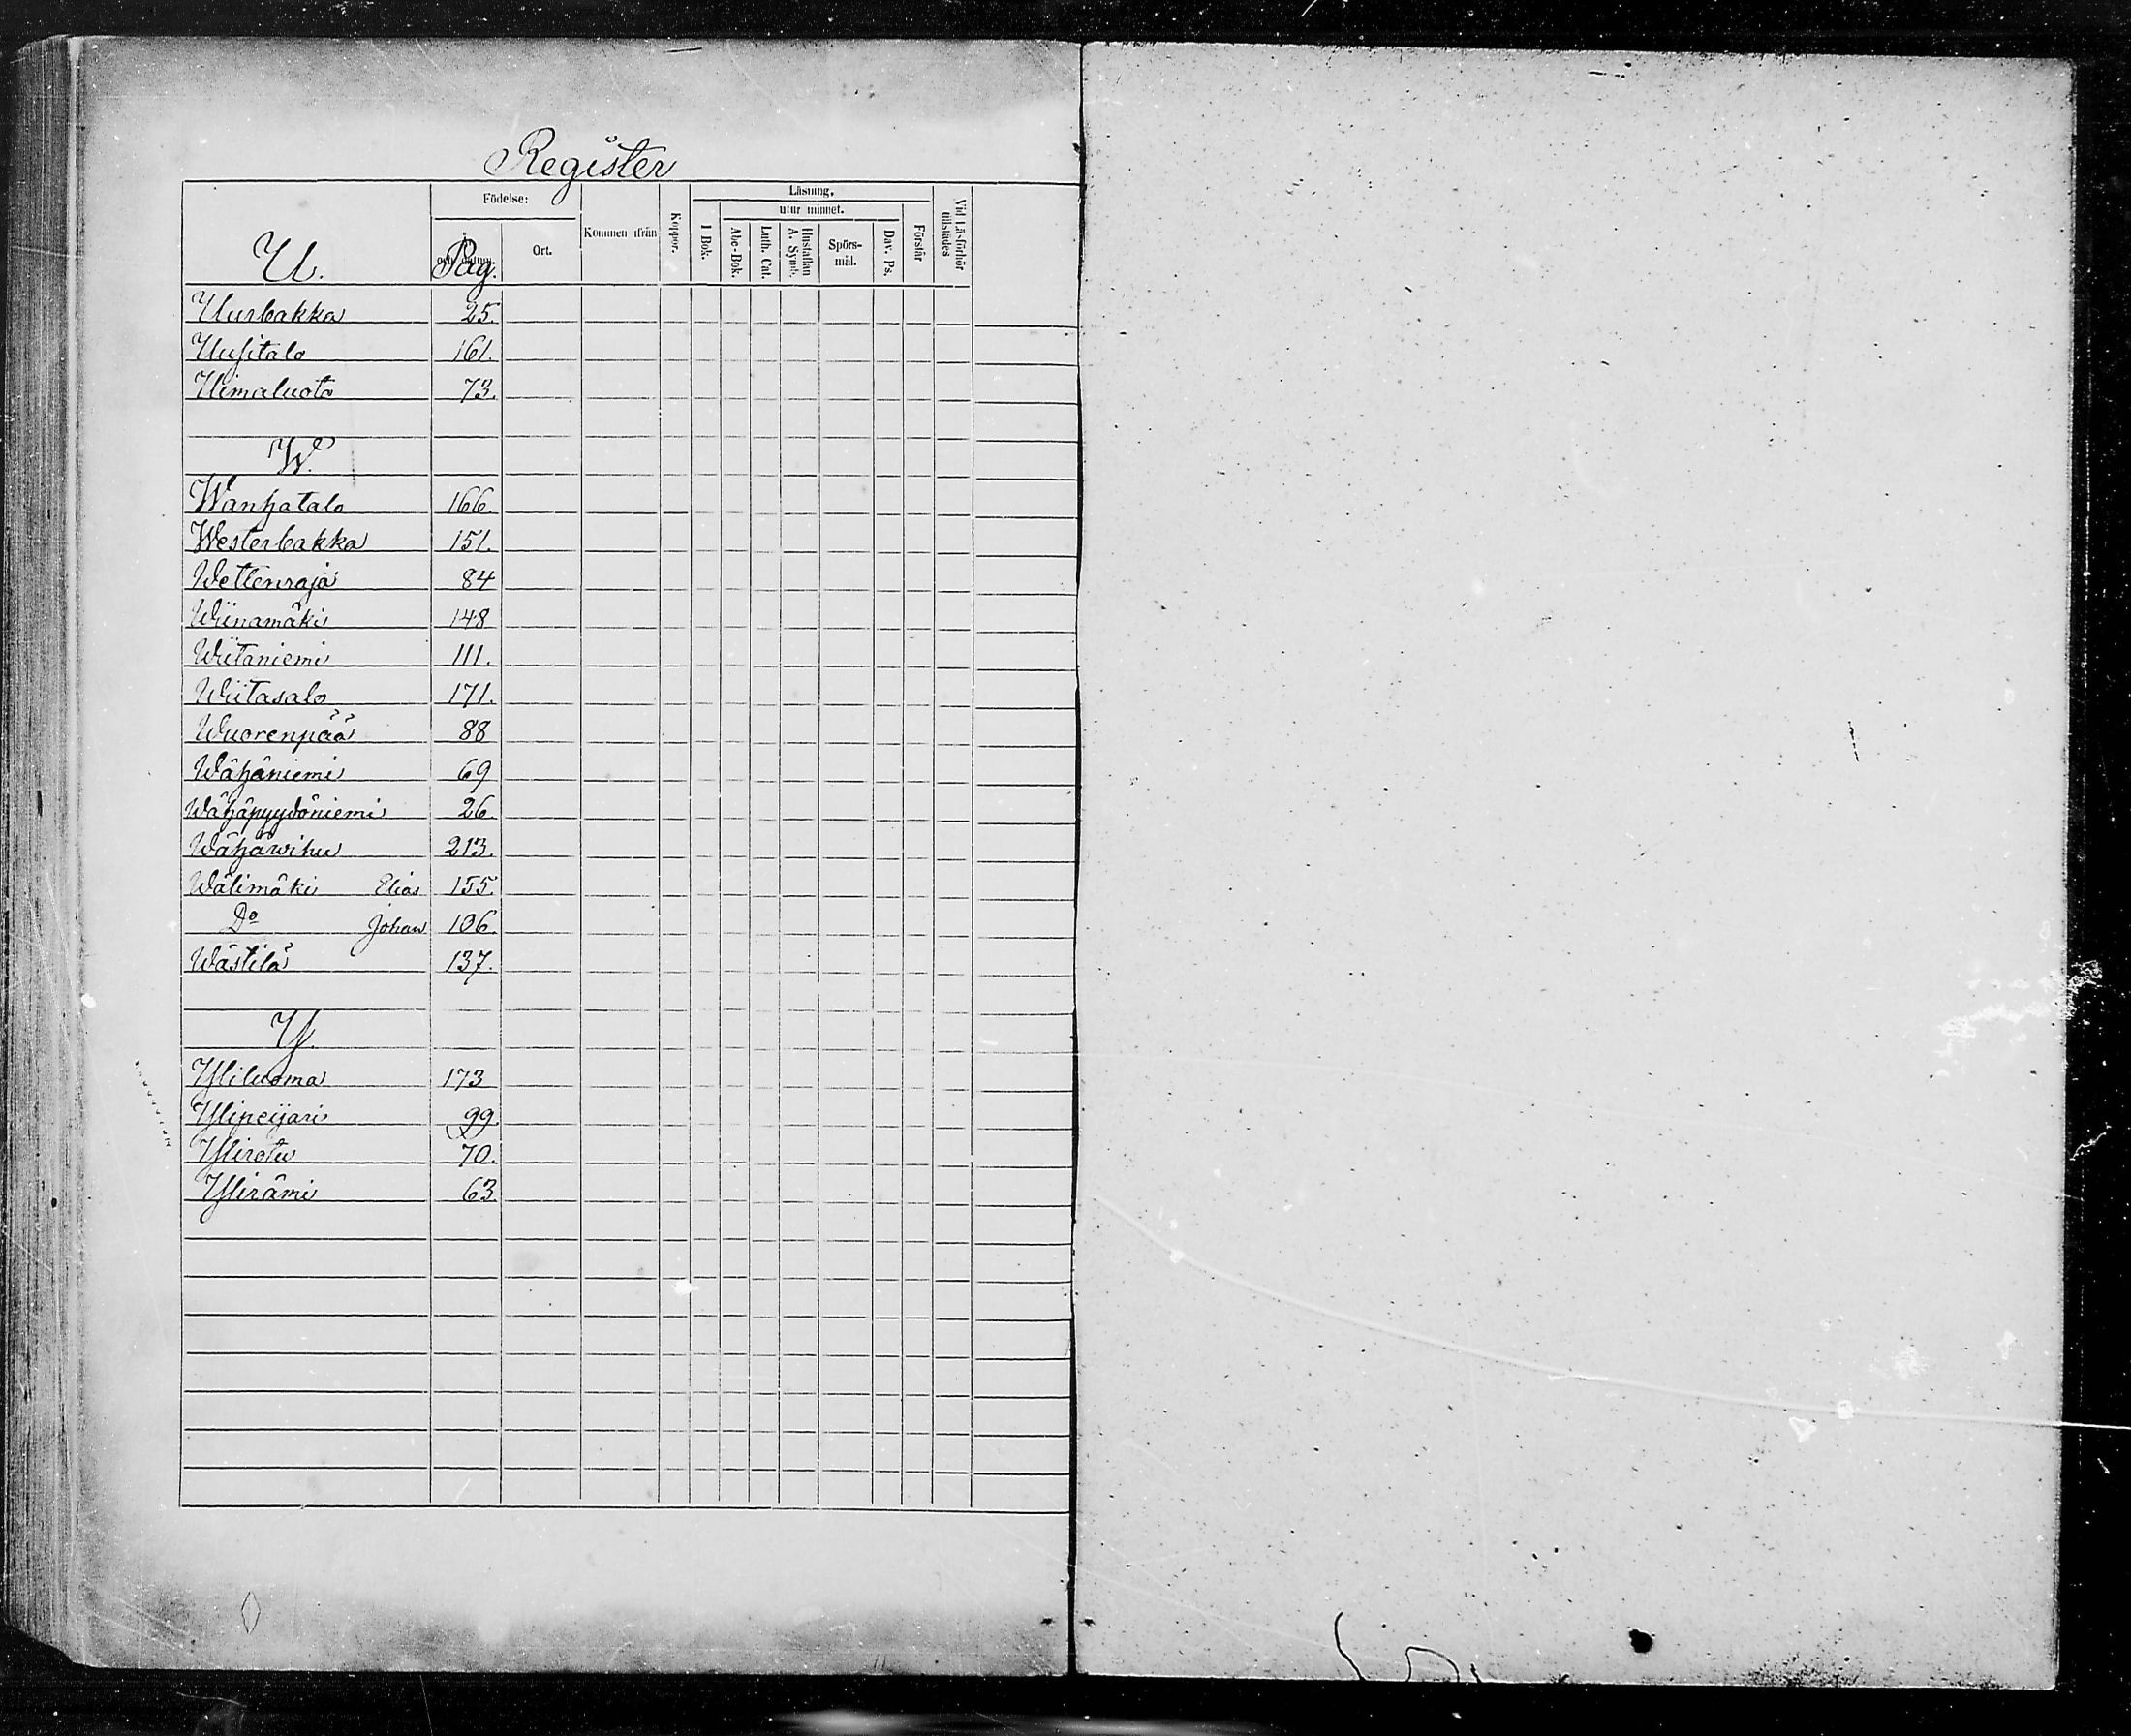 Register
Födelse: Kommen ifrån Koppor. Läsning. Vid Läsförhör tillstädes
utur minnet.
U. Pag. Ort. I Bok. Abc-Bok. Luth. Cat. Hustaflan A. Symb. Spörs-mål. Dav. Ps. Förstår
Uurbakka 25.
Uusitalo 161.
Uimaluoto 73.
W.
Wanhatalo 166.
Westerbakka 151.
Wettenraja 84
Wiinamäki 148
Wiitaniemi 111.
Wiitasalo 171.
Wuorenpää 88
Wähäniemi 69
Wähäpyydöniemi 26
Wähäwihu 213.
Wälimäki Elias 155.
Do Johan 106.
Wästilä 137.
Y.
Yliluoma 173
Ylipeijari 99.
Ylirotu 70.
Ylirämi 63